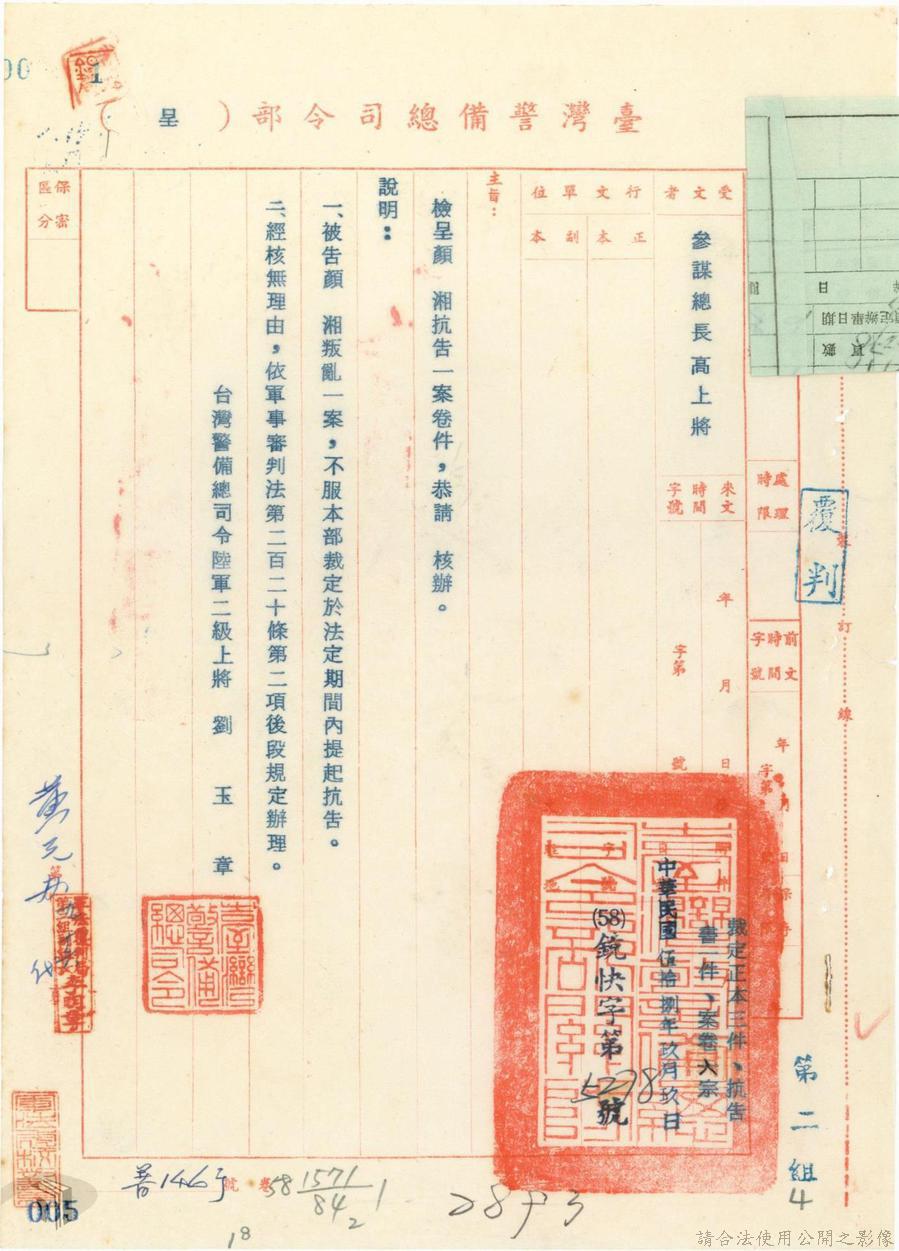 臺灣警備總司令部（呈）
保密
區分
受文者
參謀總長高上將
行文單位
正本
副本
來文
時間
字號
年 月 日
字第 號
處理
時限
前文
時間
字號
覆判
裝
訂
線
數頁
主旨：
檢呈顏 湘抗告一案卷件，恭請 核辦。
說明：
一、被告顏 湘叛亂一案，不服本部裁定於法定期間內提起抗告。
二、經核無理由，依軍事審判法第二百二十條第二項後段規定辦理。
台灣警備總司令陸軍二級上將 劉 玉 章
臺灣警備總司令
裁定正本三件、抗告
書一件、案卷六宗
中華民國 伍拾捌年玖月玖日
(58)銳快字第5278號
第二組
4
普146号
號卷
58 1571/84 2 1
18
005
請合法使用公開之影像